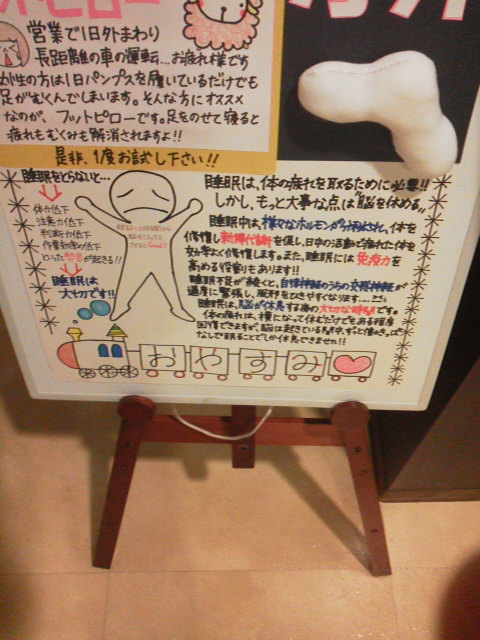 営業で1日外まわり
長距離の車の運転…お疲れ様です
の方は1日パンプスを履いているだけでも
足がむくんでしまいます。そんな方にオススメ
なのが、フットピローです。足をのせて寝ると
疲れもむくみも解消されますよ!!
是非、1度お試し下さい!!
睡眠をとらないと…
体力低下
注意力低下
判断力低下
作業効率の低下
といった
が起きる!!
睡眠は
大切です!!
睡眠は、体の疲れを取るために必要!!
しかし、もっと大事な点は「脳を休める」
睡眠中は、様々なホルモンが分泌され、体を
修復し新陳代謝を促し、日中の活動で疲れた体を
効率よく修復します。また、睡眠には免疫力を
高める役割もあります!!
睡眠不足が続くと、自律神経のうちの交感神経が
過度に緊張し、風邪をひきやすくなります…
睡眠は、脳が休息する為の大切な時間です。
体の疲れは、横になって休むだけでもある程度
回復できますが、脳は起きている間中、ずっと働きっぱ
なしで眠ることでしか休息できません!!
おやすみ